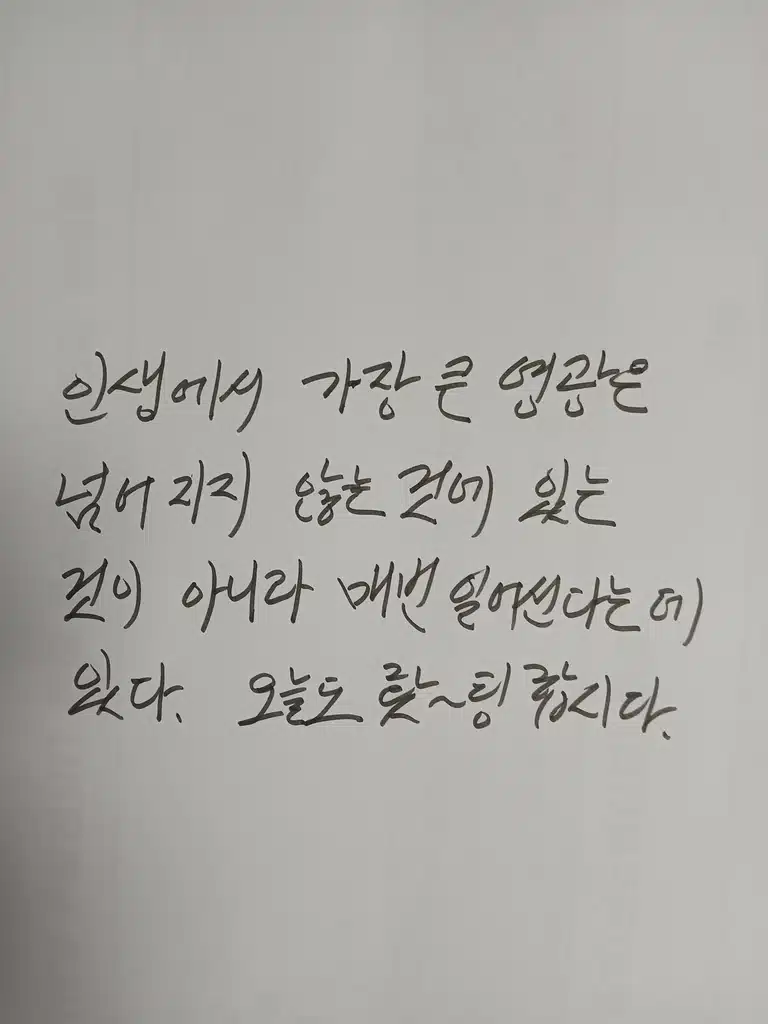 인생에서 가장 큰 영광은
넘어지지 않는 것에 있는
것이 아니라 매번 일어선다는데
있다. 오늘도 홧~팅 합시다.